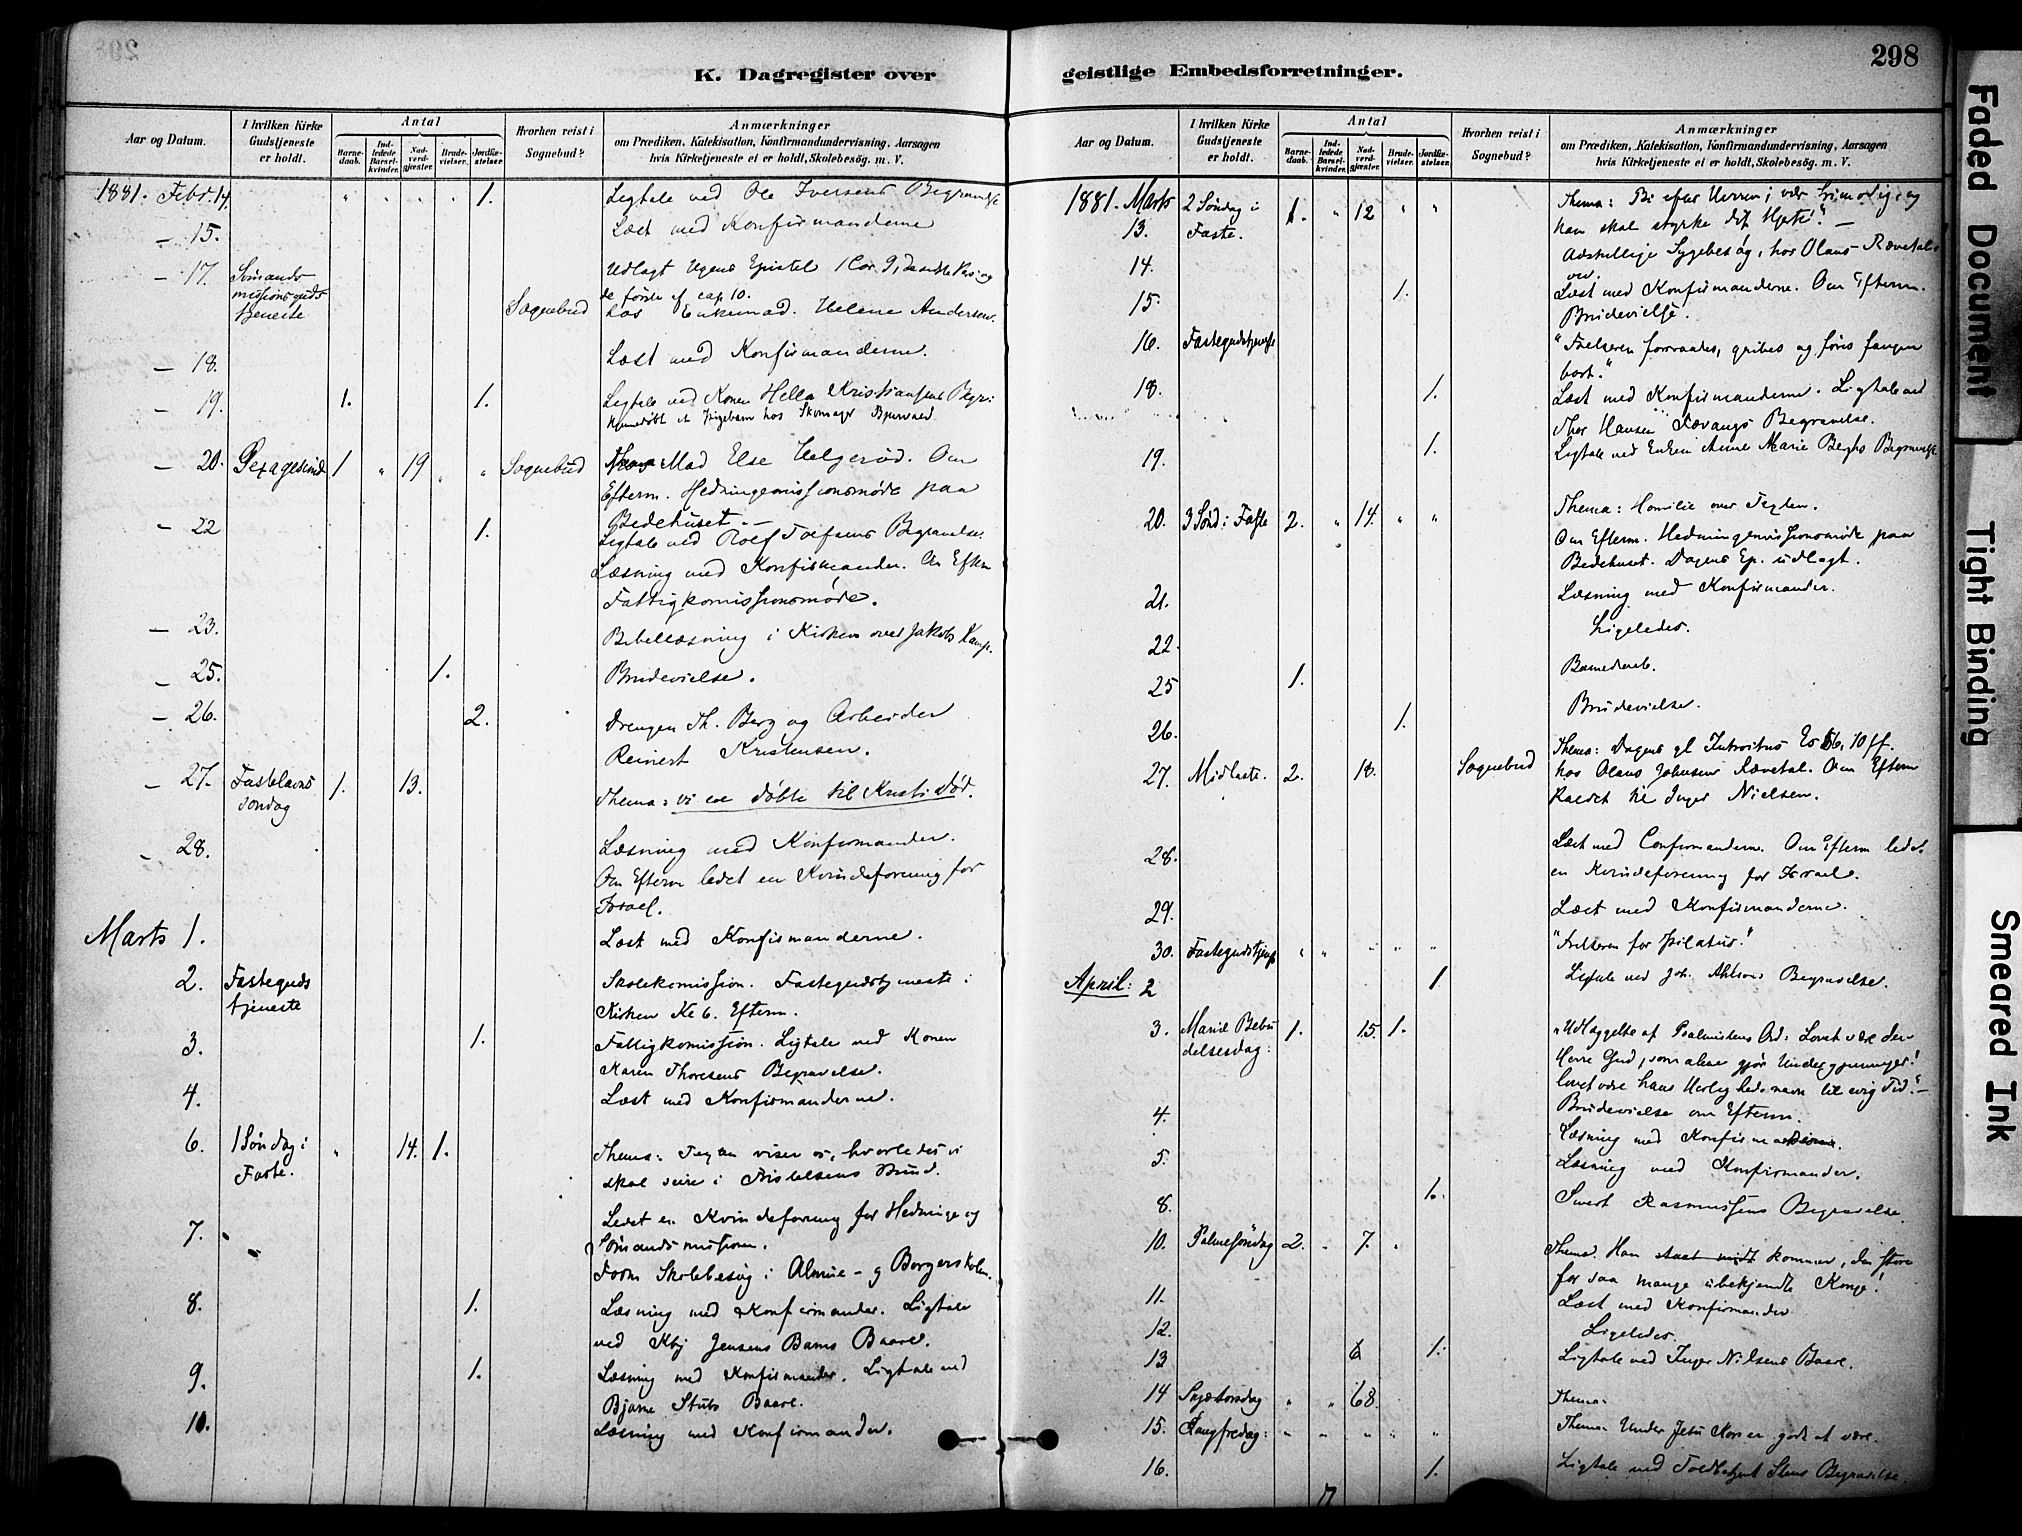 298
K. Dagregister over
Aar og Datum.
I hvilken Kirke Gudstjeneste er holdt.
Antal
Barne-daab.
Ind-ledede Barsel-kvinder.
Nad-verd-gjester.
Brude-vielser.
Jordfæ-stelser.
Hvorhen reist i Sognebud?
Anmærkninger
om Prædiken, Katekisation, Konfirmandundervisning, Aarsagen
hvis Kirketjeneste ei er holdt, Skolebesög. m. V.
1881. Febr. 14. 1. Ligtale ved Ole Iversens Begravelse
– 15. Læst med Konfirmanderne
– 17. Sømands Udlagt Ugens Epistel 1 Cor. 9,
missionsguds de første af cap 10.
tjeneste Sognebud hos Enkemad. Helene Andersen.
– 18. Læst med Konfirmanderne.
– 19. 1. 1. Ligtale ved Konen Hella Kristiansens Begr:
hos Skomager
– 20. Sexagesima 1 19 Sognebud Mad Else Helgerød. Om
Efterm. Hedningemissionsmøde paa
Bedehuset. –
– 22 1. Ligtale ved Rolf Begravelse.
Læsning med Konfirmander. Om Efterm
Fattigkomissionsmøde.
– 23. Bibellæsning i Kirken over Jakobs Kamp.
– 25. 1. Brudevielse.
– 26. 2. Drengen Th. Berg og Arbeider
Reinert Kristensen.
– 27. Fastelavns 1. 13. Thema: vi ere døbte til Kristi Død.
søndag
– 28. Læsning med Konfirmander.
Om Efterm ledet en Kvindeforening for
Israel.
Marts 1. Læst med Konfirmanderne.
2. Fasteguds Skolekomission. Fastegudstjeneste i
tjeneste Kirken Kl 6. Efterm.
3. 1. Fattigkomission. Ligtale ved Konen
Karen Thoresens Begravelse.
4. Læst med Konfirmanderne.
6. 1 Søndag i 14. 1. Thema: Texten viser os, hvorledes vi
Faste. skal seire i Fristelsens Stund.
7. Ledet en Kvindeforening for Hedninge og
Sømandsmissionen.
Form Skolebesøg i Almue- og Borgerskolen.
8. 1. Læsning med Konfirmander. Ligtale
ved Jensens Barns Baare.
9. 1. Læsning med Konfirmander. Ligtale ved
Bjarne Stubs Baare.
10. Læsning med Konfirmander.
geistlige Embedsforretninger.
Aar og Datum.
I hvilken Kirke Gudstjeneste er holdt.
Antal
Barne-daab.
Ind-ledede Barsel-kvinder.
Nad-verd-gjester.
Brude-vielser.
Jordfæ-stelser.
Hvorhen reist i Sognebud?
Anmærkninger
om Prædiken, Katekisation, Konfirmandundervisning, Aarsagen
hvis Kirketjeneste ei er holdt, Skolebesög. m. V.
1881. Marts 2 Søndag i 1. 12 Thema: Bi efter Herren; vær frimodig, og
13. Faste. han skal styrke dit Hjerte". –
14. Adskillige Sygebesøg, hos Olaus Rævetal
15. 1. Læst med Konfirmanderne. Om Efterm.
Brudevielse.
16. Fastegudstjeneste "Frelseren forraades, gribes og føres fangen
bort."
18. 1. Læst med Konfirmanderne. Ligtale ved
Thor Hansen Begravelse.
19. 1. Ligtale ved Enken Anne Marie Berghs Begravelse
20. 3 Sønd: i Faste 2. 14. Thema: Homilie over Texten.
Om Efterm. Hedningemissionsmøde paa
Bedehuset. Dagens Ep. udlagt.
21. Læsning med Konfirmander.
22. Ligeledes.
25 1. Barnedaab.
26. 1. Brudevielse.
27. Midfaste. 2. 18. Sognebud Thema: Dagens gl Introitus Es 66, 10 ff.
hos Olaus Johnsens Rævetal. Om Efterm
Kaldet til Inger Nielsen.
28. Læst med Confirmanderne. Om Efterm ledet
en Kvindeforening for Israel.
29. Læst med Konfirmanderne.
30. Fastegudstjeneste "Frelseren for Pilatus."
April: 2 1 Ligtale ved Joh. Begravelse.
3. Mariæ Bebu 1. 15. 1. "Udlæggelse af Psalmistens Ord: Lovet være den
delsesdag: Herre Gud, som alene gjør Undergjerninger!
lovet være hans Herligheds navn til evig Tid." –
Brudevielse om Efterm.
4. Læsning med
5. Læsning med Konfirmander.
8. 1. Rasmussens Begravelse.
10. Palmesøndag 2. 7. Thema: Han kommer, den store
for saa mange ubekjendte Konge!
11. Læst med Konfirmander
12. Ligeledes.
13 6 1. Ligtale ved Inger Nilsens Baare.
14 Skjærtorsdag 68. Thema.
15. Langfredag: Thema. Under Jesu Kors er godt at være.
16. 1. Ligtale ved Stens Begravelse.
7
Faded Document
Tight Binding
Smeared Ink